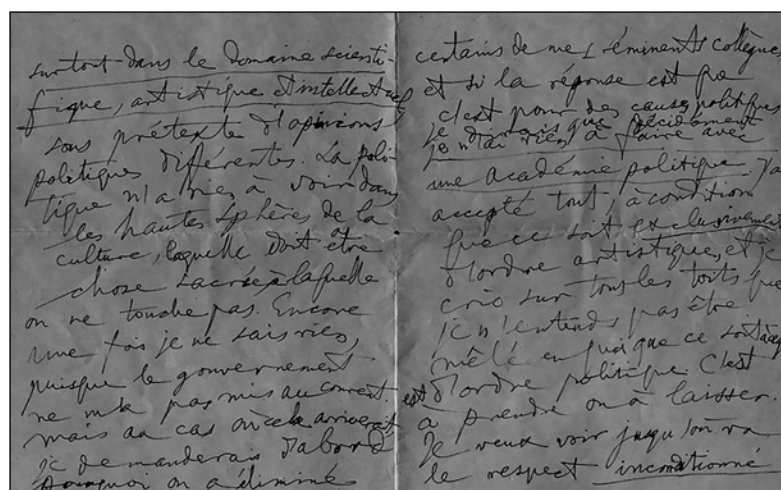 surtout dans le domaine scienti-
fique, artistique et intellectuel,
sous prétexte d'opinions
politiques différentes. La poli-
tique n'a rien à voir dans
les hautes sphères de la
culture, laquelle doit être
chose sacrée à laquelle
on ne touche pas. Encore
une fois je ne sais rien,
puisque le gouvernement
ne m'a pas mis au courant.
mais au cas où cela arriverait
je demanderais d'abord
pourquoi on a éliminé
certains de mes éminents collègues,
et si la réponse est que
c'est pour des causes politiques
je dirais que décidément
je n'ai rien à faire avec
une académie politique. J'ai
accepté tout, à condition
que ce soit exclusivement
d'ordre artistique, et je
crie sur tous les toits que
je n'entends pas être
mêlé en quoi que ce soit à ce
est d'ordre politique. C'est
à prendre ou à laisser.
Je veux voir jusqu'où on va
le respect inconditionné